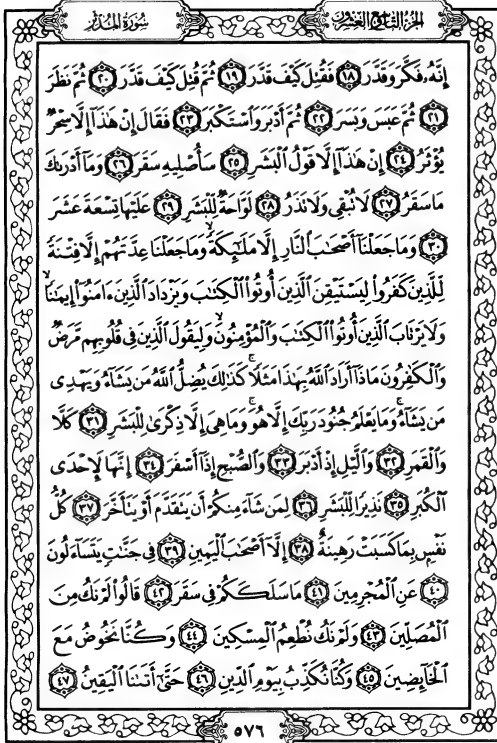 سُورَةُ المُدَّثِّرِ
الجُزْءُ التَّاسِعُ وَالعِشْرُونَ
إِنَّهُۥ فَكَّرَ وَقَدَّرَ ١٨ فَقُتِلَ كَيْفَ قَدَّرَ ١٩ ثُمَّ قُتِلَ كَيْفَ قَدَّرَ ٢٠ ثُمَّ نَظَرَ
٢١ ثُمَّ عَبَسَ وَبَسَرَ ٢٢ ثُمَّ أَدْبَرَ وَٱسْتَكْبَرَ ٢٣ فَقَالَ إِنْ هَٰذَآ إِلَّا سِحْرٌ
يُؤْثَرُ ٢٤ إِنْ هَٰذَآ إِلَّا قَوْلُ ٱلْبَشَرِ ٢٥ سَأُصْلِيهِ سَقَرَ ٢٦ وَمَآ أَدْرَىٰكَ
مَا سَقَرُ ٢٧ لَا تُبْقِى وَلَا تَذَرُ ٢٨ لَوَّاحَةٌ لِّلْبَشَرِ ٢٩ عَلَيْهَا تِسْعَةَ عَشَرَ
٣٠ وَمَا جَعَلْنَآ أَصْحَٰبَ ٱلنَّارِ إِلَّا مَلَٰٓئِكَةً ۙ وَمَا جَعَلْنَا عِدَّتَهُمْ إِلَّا فِتْنَةً
لِّلَّذِينَ كَفَرُوا۟ لِيَسْتَيْقِنَ ٱلَّذِينَ أُوتُوا۟ ٱلْكِتَٰبَ وَيَزْدَادَ ٱلَّذِينَ ءَامَنُوٓا۟ إِيمَٰنًا ۙ
وَلَا يَرْتَابَ ٱلَّذِينَ أُوتُوا۟ ٱلْكِتَٰبَ وَٱلْمُؤْمِنُونَ ۙ وَلِيَقُولَ ٱلَّذِينَ فِى قُلُوبِهِم مَّرَضٌ
وَٱلْكَٰفِرُونَ مَاذَآ أَرَادَ ٱللَّهُ بِهَٰذَا مَثَلًا ۚ كَذَٰلِكَ يُضِلُّ ٱللَّهُ مَن يَشَآءُ وَيَهْدِى
مَن يَشَآءُ ۚ وَمَا يَعْلَمُ جُنُودَ رَبِّكَ إِلَّا هُوَ ۚ وَمَا هِىَ إِلَّا ذِكْرَىٰ لِلْبَشَرِ ٣١ كَلَّا
وَٱلْقَمَرِ ٣٢ وَٱلَّيْلِ إِذْ أَدْبَرَ ٣٣ وَٱلصُّبْحِ إِذَآ أَسْفَرَ ٣٤ إِنَّهَا لَإِحْدَى
ٱلْكُبَرِ ٣٥ نَذِيرًا لِّلْبَشَرِ ٣٦ لِمَن شَآءَ مِنكُمْ أَن يَتَقَدَّمَ أَوْ يَتَأَخَّرَ ٣٧ كُلُّ
نَفْسٍۭ بِمَا كَسَبَتْ رَهِينَةٌ ٣٨ إِلَّآ أَصْحَٰبَ ٱلْيَمِينِ ٣٩ فِى جَنَّٰتٍ يَتَسَآءَلُونَ
٤٠ عَنِ ٱلْمُجْرِمِينَ ٤١ مَا سَلَكَكُمْ فِى سَقَرَ ٤٢ قَالُوا۟ لَمْ نَكُ مِنَ
ٱلْمُصَلِّينَ ٤٣ وَلَمْ نَكُ نُطْعِمُ ٱلْمِسْكِينَ ٤٤ وَكُنَّا نَخُوضُ مَعَ
ٱلْخَآئِضِينَ ٤٥ وَكُنَّا نُكَذِّبُ بِيَوْمِ ٱلدِّينِ ٤٦ حَتَّىٰٓ أَتَىٰنَا ٱلْيَقِينُ ٤٧
٥٧٦